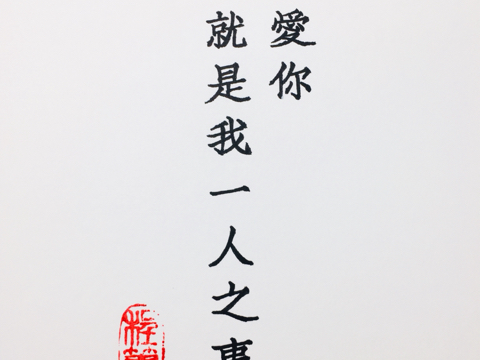 愛你
就是我一人之事